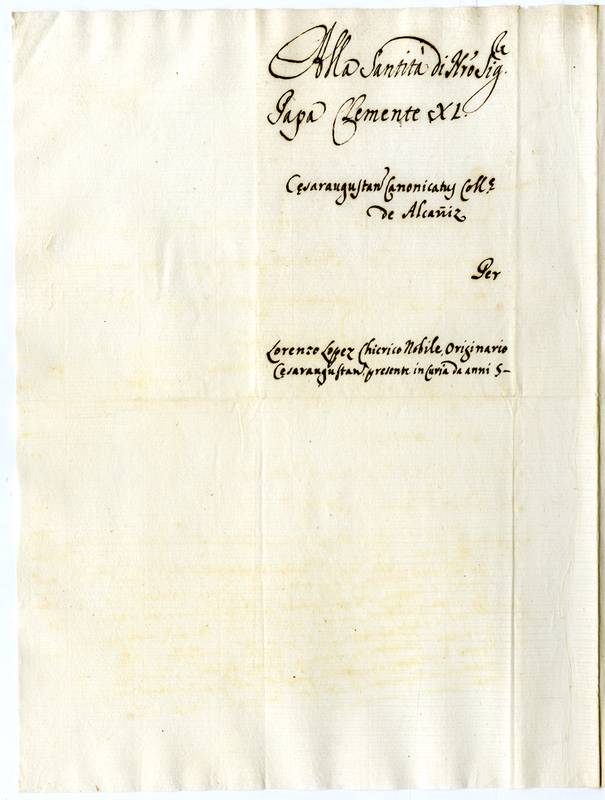 Alla Santità di Nro Sig.re
Papa Clemente XI.
Cęsaraugustan Canonicatus Coll.ę
de Alcañiz
Per
Lorenzo Lopez Chierico Nobile, Originario
Cęsaraugustan, presente in Curia da anni 5-